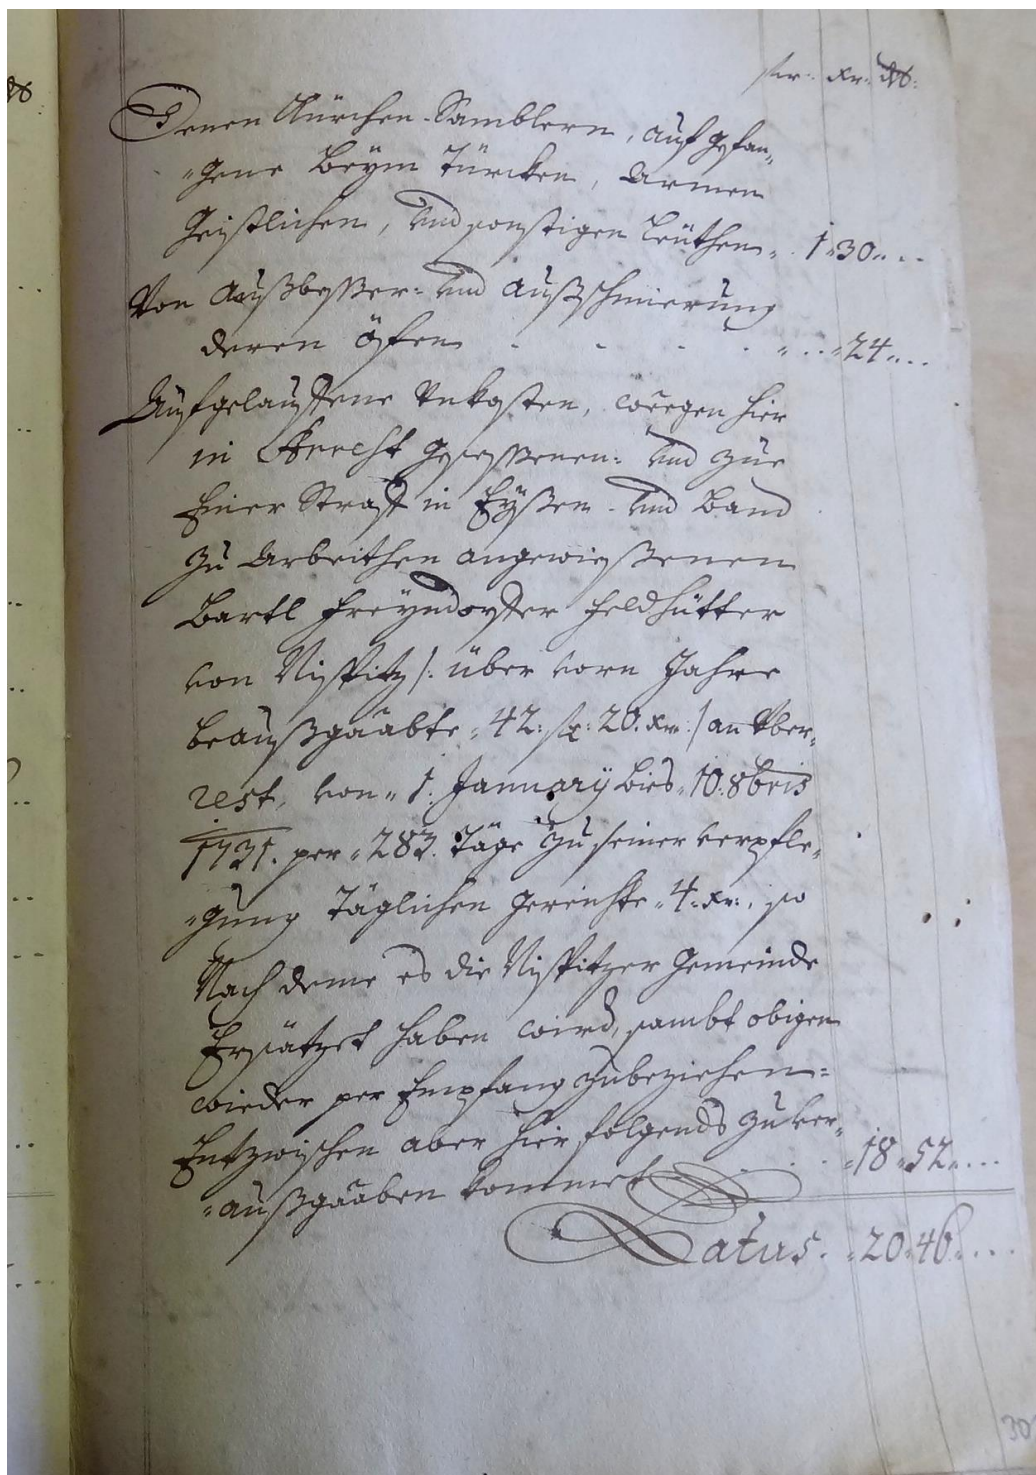 fr: xr: ₰:
Denen Kürchen-Samblern, auf gefan„
„gene beÿm Türcken, Armen
Geistlichen, und sonstigen Leüthen „ . 1 „ 30 „ . .
Von Außbeßer- und Außschmierung
deren öfen - - - - „ . . „ 24 „ . .
Aufgelauffene Unkosten, wegen hier
in Arrest geseßenen- und zue
Einer Straff in Eÿßen- und Band
zu Arbeithen angewießenen
Bartl Freyndorffer Feldhütter
von Nispitz /: über vorn Jahre
beaußgaabte „ 42: fr: 20. xr: / an Uber„
rest, von „ 1. Januarÿ bies „ 10. 8bris
1731. per „ 283. Täge zu seiner verpfle„
„gung Täglichen gereichte „ 4. xr:, so
Nach deme es die Nispitzer Gemeinde
Ersätzet haben wird, sambt obigen
wieder per Empfang zubeziehen-
Entzwischen aber hier folgends zu ver„
„außgaaben kommet . . . „ 18 „ 52 „ . . .
Latus . „ 20 „ 46 „ . . .
30